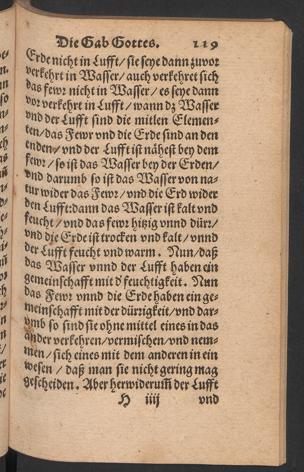 Die Gab Gottes. 119
Erde nicht in Lufft/ sie seye dann zuvor
verkehrt in Wasser/ auch verkehret sich
das fewr nicht in Wasser/ es seye dann
vor verkehrt in Lufft/ wann dz Wasser
vnd der Lufft sind die mitlen Elemen-
ten/ das Fewr vnd die Erde sind an den
enden/ vnd der Lufft ist nähest bey dem
fewr/ so ist das Wasser bey der Erden/
vnd darumb so ist das Wasser von na-
tur wider das Fewr/ vnd die Erd wider
den Lufft: dann das Wasser ist kalt vnd
feucht/ vnd das fewr hitzig vnnd dürr/
vnd die Erde ist trocken vnd kalt/ vnnd
der Lufft feucht vnd warm. Nun/ daß
das Wasser vnnd der Lufft haben ein
gemeinschafft mit d' feuchtigkeit. Nun
das Fewr vnnd die Erde haben ein ge-
meinschafft mit der dürrigkeit/ vnd dar-
vmb so sind sie ohne mittel eines in das
ander verkehren/ vermischen/ vnd nem-
men/ sich eines mit dem anderen in ein
wesen/ daß man sie nicht gering mag
gescheiden. Aber herwiderum̃ der Lufft
H iiij vnd